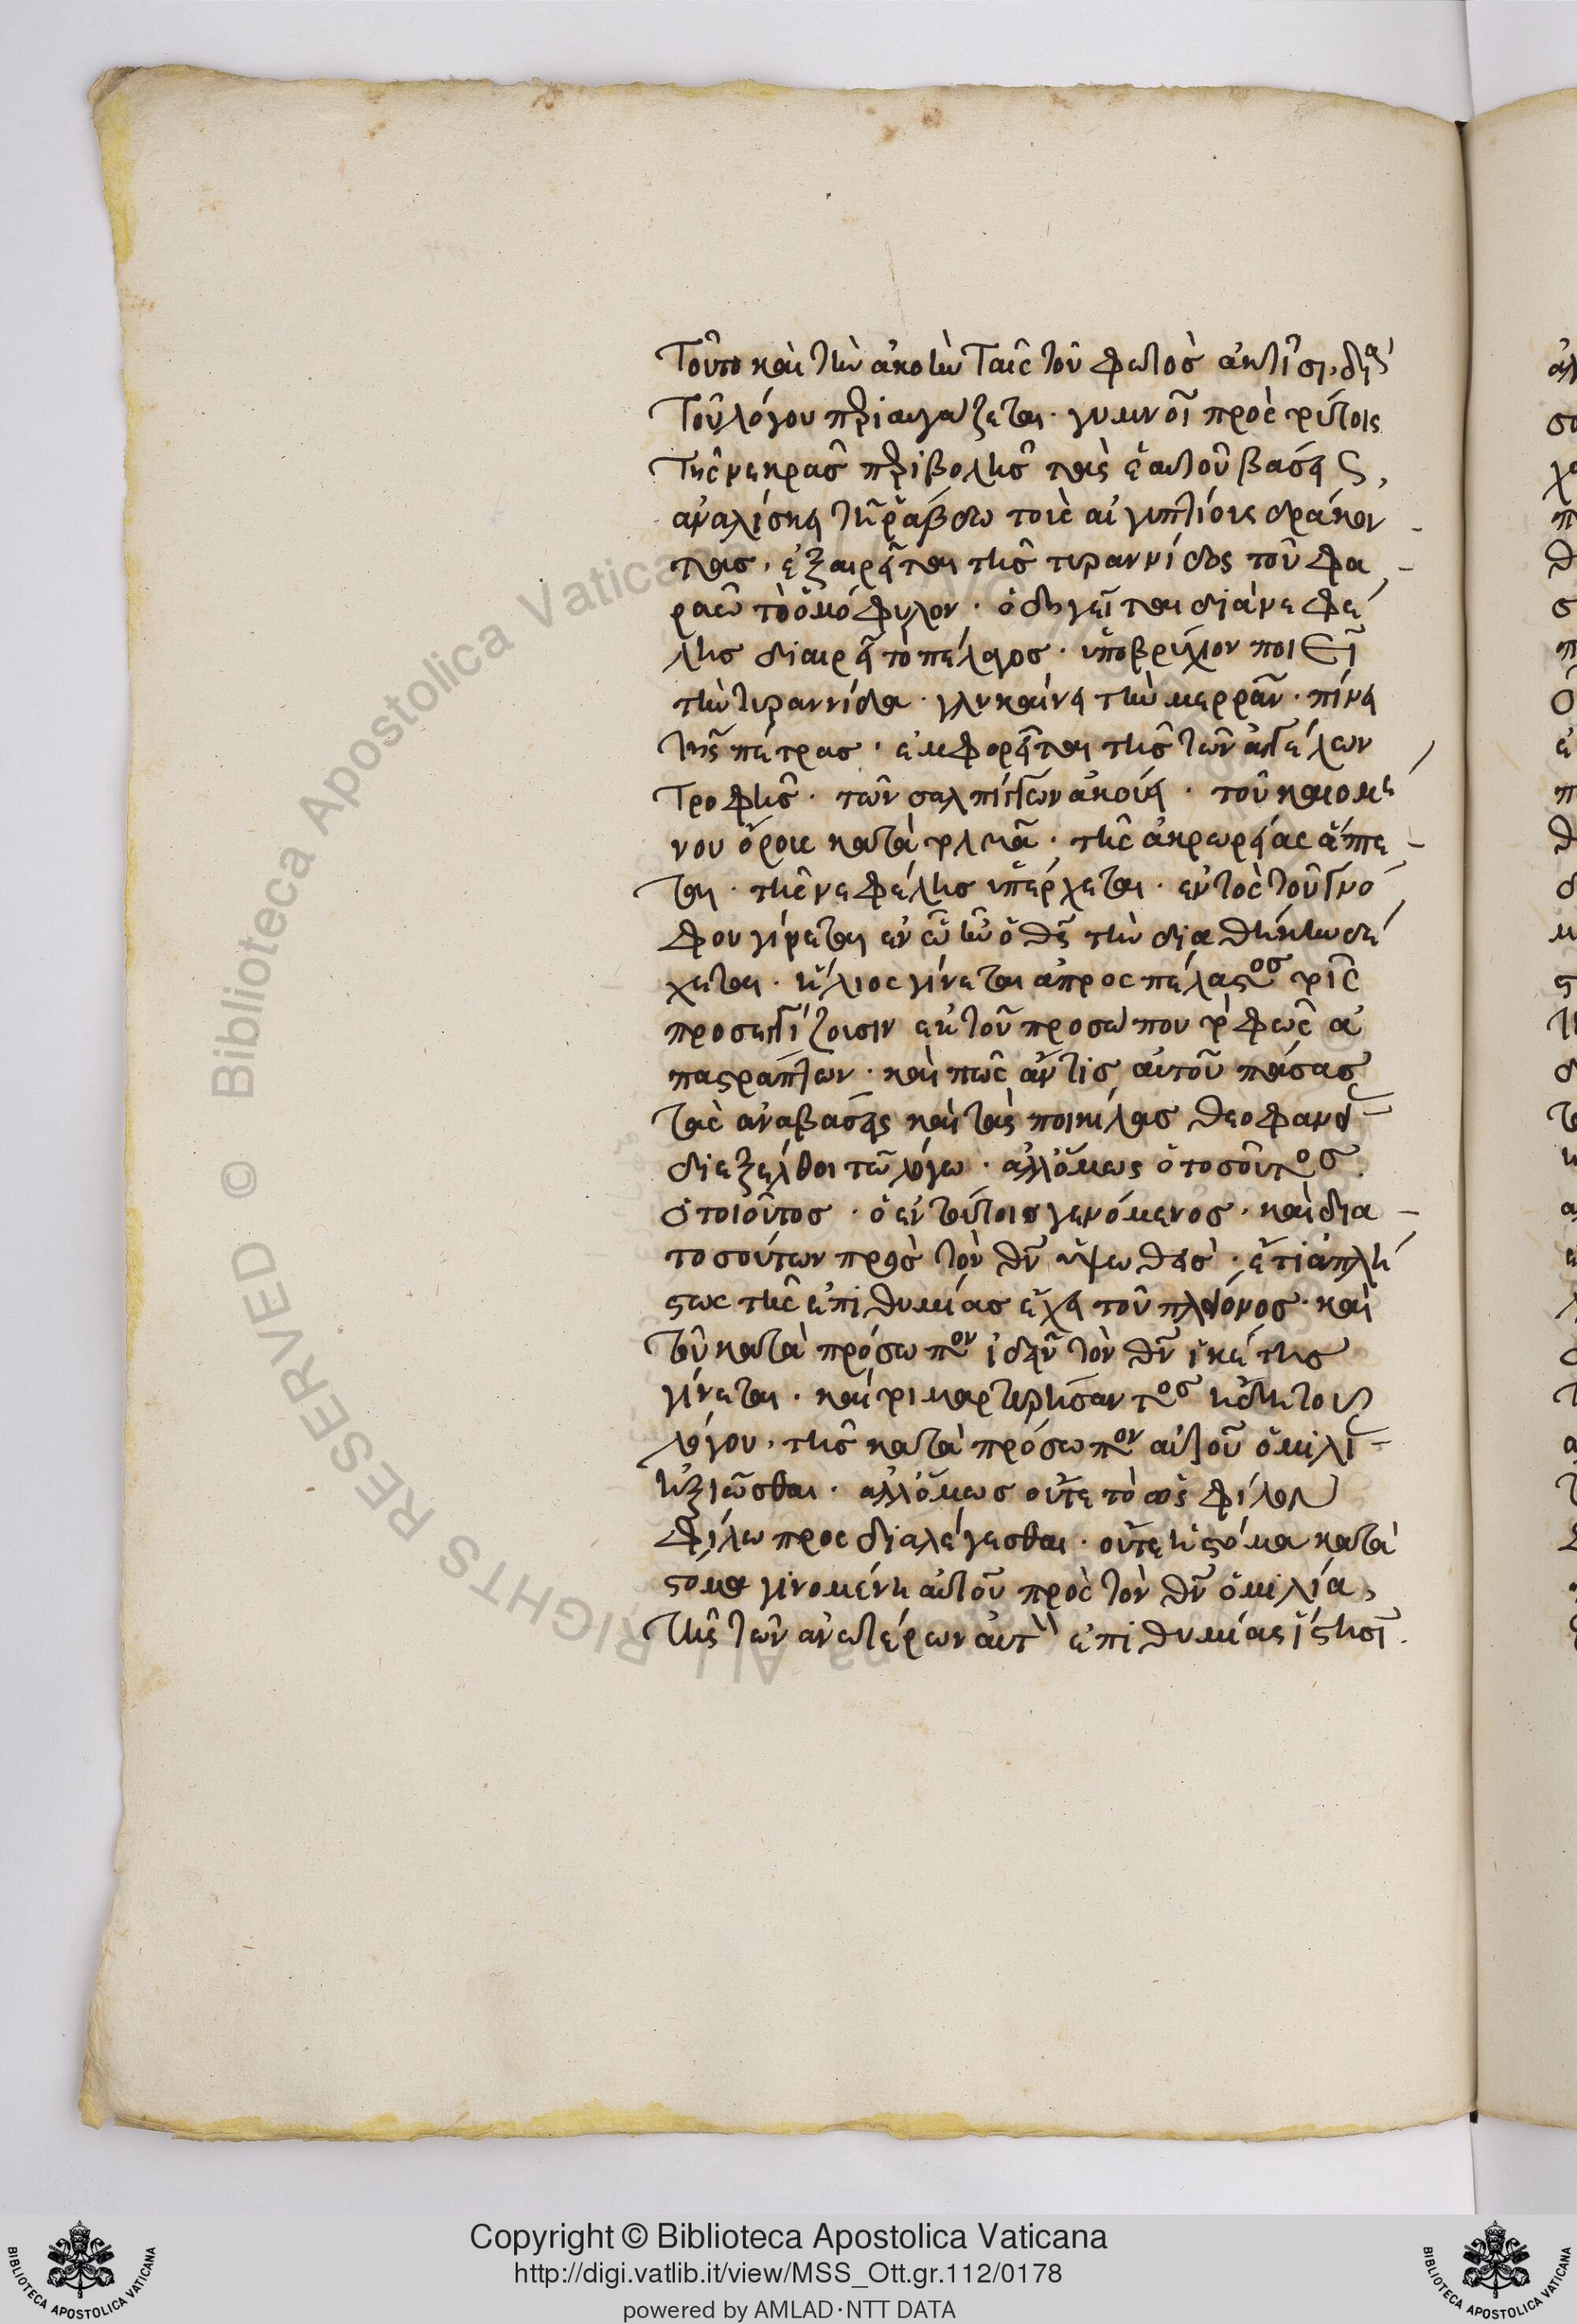 τούτω καὶ τὴν ἀκοὴν ταῖς τοῦ φωτὸς ἀκτῖσι, διὰ
τοῦ λόγου περιαυγάζεται· γυμνοῖ πρὸς τούτοις
τῆς νεκρᾶς περιβολῆς τὰς ἑαυτοῦ βάσεις,
ἀναλίσκει τῇ ῥάβδω τοὺς αἰγυπτίους δράκον
τας, ἐξαιρεῖται τῆς τυραννίδος τοῦ φα
ραὼ τὸ ὁμόφυλον· ὁδηγεῖται διὰ νεφέ
λης διαιρεῖ τὸ πέλαγος· ὑποβρύχιον ποιεῖ
τὴν τυραννίδα· γλυκαίνει τὴν μερράν· πίνει
τῆς πέτρας· ἐμφορεῖται τῆς τῶν ἀγγέλων
τροφῆς· τῶν σαλπίγγων ἀκούει· τοῦ καιομέ
νου ὄρους κατατολμᾶ· τῆς ἀκρωρείας ἅπτε
ται· τῆς νεφέλης ὑπέρχεται· ἐντὸς τοῦ γνό
φου γίνεται ἐν ὧ ἦν ὁ θς τὴν διαθήκην δέ
χεται· ἥλιος γίνεται ἀπροσπέλαστος τοῖς
προσεγγίζουσιν ἐκ τοῦ προσώπου τὸ φῶς ἀ
παστράπτων· καὶ πῶς ἄν τις αὐτοῦ πάσας
τὰς ἀναβάσεις καὶ τὰς ποικίλας θεοφανεί
διεξέλθοι τῶ λόγω· ἀλλ' ὅμως ὁ τοσοῦτος·
ὁ τοιοῦτος· ὁ ἐν τούτοις γενόμενος· καὶ δια
τοσούτων πρὸς τὸν θν ὑψωθεὶς· ἔτι ἀπλή
στως τῆς ἐπιθυμίας ἔχει τοῦ πλείονος· καὶ
τοῦ κατὰ πρόσωπον ἰδεῖν τὸν θν ἱκέτης
γίνεται· καί τοι μαρτυρήσαντος ἤδη τοῦ
λόγου, τῆς κατὰ πρόσωπον αὐτοῦ ὁμιλί
ἠξιῶσθαι· ἀλλ' ὅμως οὔτε τὸ ὡς φίλον
φίλω προσδιαλέγεσθαι· οὔτε ἡ στόμα κατὰ
στόμα γινομένη αὐτοῦ πρὸς τὸν θν ὁμιλία,
τῆς τῶν ἀνωτέρων αὐτὸν ἐπιθυμίας ἵστησι·
Copyright © Biblioteca Apostolica Vaticana
http://digi.vatlib.it/view/MSS_Ott.gr.112/0178
powered by AMLAD·NTT DATA
© Biblioteca Apostolica Vaticana
ALL RIGHTS RESERVED
BIBLIOTECA APOSTOLICA VATICANA
BIBLIOTECA APOSTOLICA VATICANA